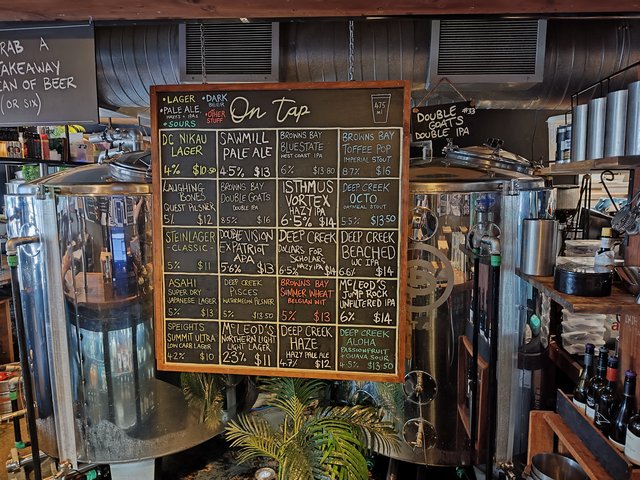 RAB A
TAKEAWAY
CAN OF BEER
(OR SIX)
• LAGER
• PALE ALE
HAZYS + IPAS
• SOURS
• DARK
BEER
• OTHER
STUFF
On Tap
475
ml
DC NIKAU
LAGER
4% $10.50
SAWMILL
PALE ALE
4.5% $13
BROWNS BAY
BLUESTATE
WEST COAST IPA
6% $13.80
BROWNS BAY
TOFFEE POP
IMPERIAL STOUT
8.7% $16
LAUGHING
BONES
GUEST PILSNER
5% $12
BROWNS BAY
DOUBLE GOATS
DOUBLE IPA
8.5% $16
ISTHMUS
VORTEX
HAZY IPA
6.5% $14
DEEP CREEK
OCTO
OATMEAL STOUT
5.5% $13.50
STEINLAGER
- CLASSIC -
5% $11
DOUBLE VISION
EXPATRIOT
APA
5.6% $13
DEEP CREEK
DOLLARS FOR
SCHOLARS
HAZY IPA
6.5% $14
DEEP CREEK
BEACHED
WC IPA
6.6% $14
ASAHI
SUPER DRY
JAPANESE LAGER
5% $13
DEEP CREEK
PISCES
WATERMELON PILSNER
5% $13.50
BROWNS BAY
SUMMER WHEAT
BELGIAN WIT
5% $13
McLEOD'S
JUMP ROCK
UNFILTERED IPA
6% $14
SPEIGHTS
SUMMIT ULTRA
LOW CARB LAGER
4.2% $10
McLEOD'S
NORTHERN LIGHT
LIGHT LAGER
2.3% $11
DEEP CREEK
HAZE
HAZY PALE ALE
4.7% $12
DEEP CREEK
ALOHA
PASSIONFRUIT
+ GUAVA SOUR
4.5% $13.50
DOUBLE
GOATS
DOUBLE IPA